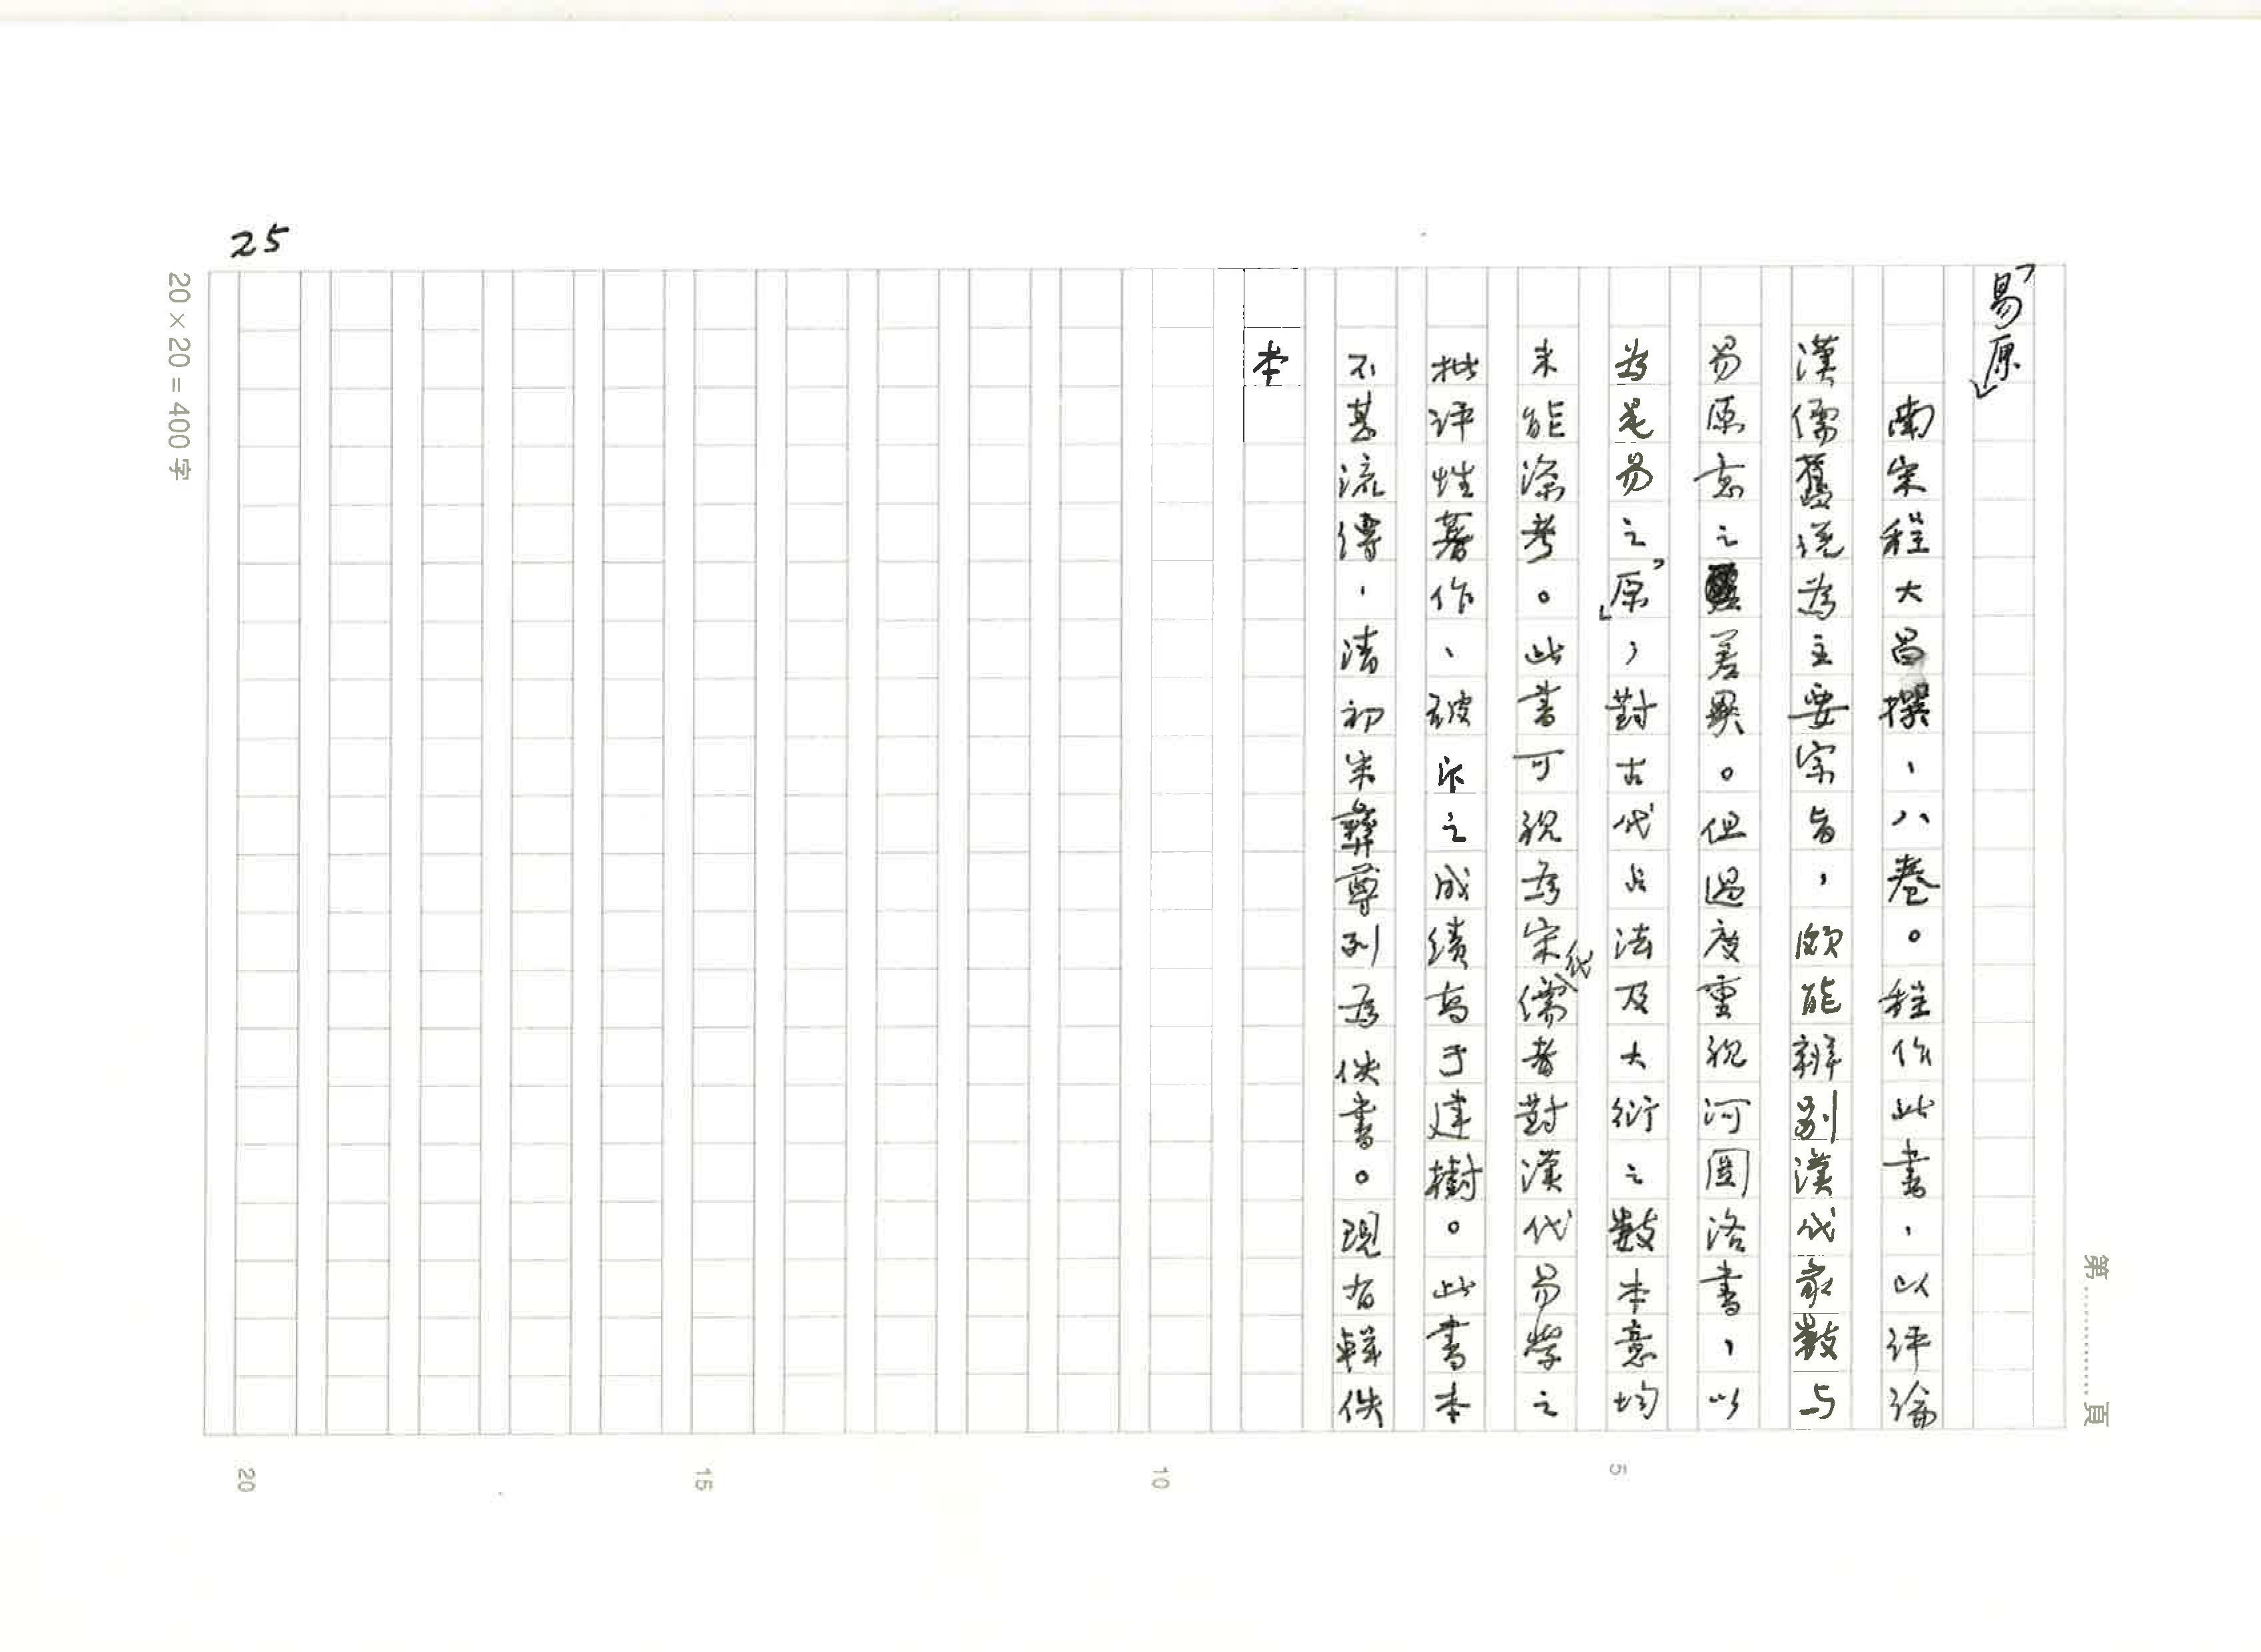 「易原」
南宋程大昌撰，八卷。程作此書，以評論
漢儒舊説為主要宗旨，頗能辨别漢代家數与
易原意之差異。但過度重視河圖洛書，以
為是易之「原」，對古代占法及大衍之數本意均
未能深考。此書可視為宋代儒者對漢代易學之
批評性著作、破斥之成績高于建樹。此書本
不甚流傳，清初朱彝尊列為佚書。現有輯佚
本
25
20×20=400字
第 頁
5
10
15
20